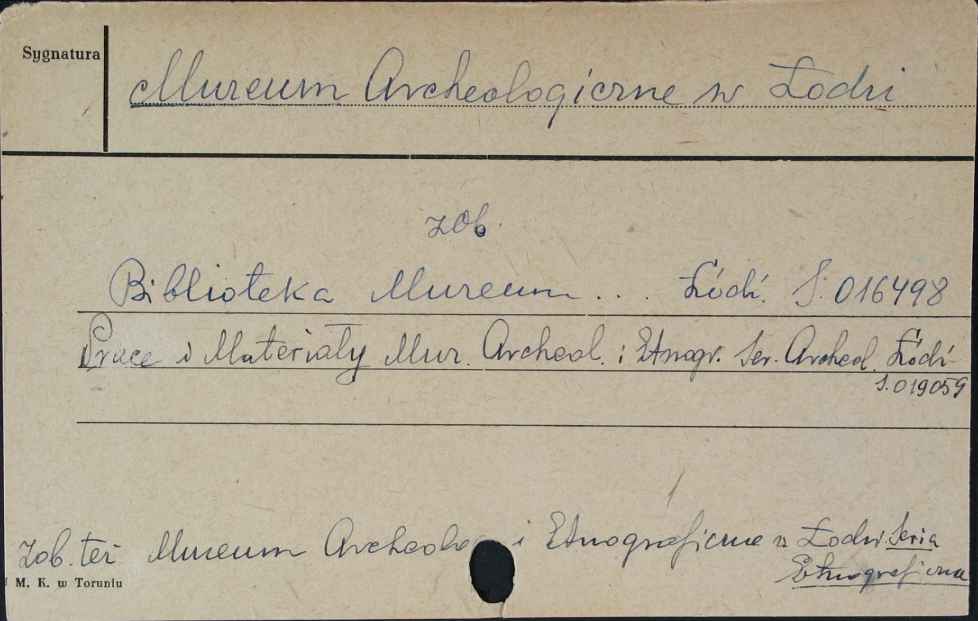 Sygnatura
Muzeum Archeologiczne w Łodzi
zob.
Biblioteka Muzeum ... Łódź. S. 016498
Prace i Materiały Muz. Archeol. i Etnogr. Ser. Archeol. Łódź
S. 019059
Zob. też Muzeum Archeolo i Etnograficzne w Łodzi. Seria
Etnograficzna
M. K. w Toruniu